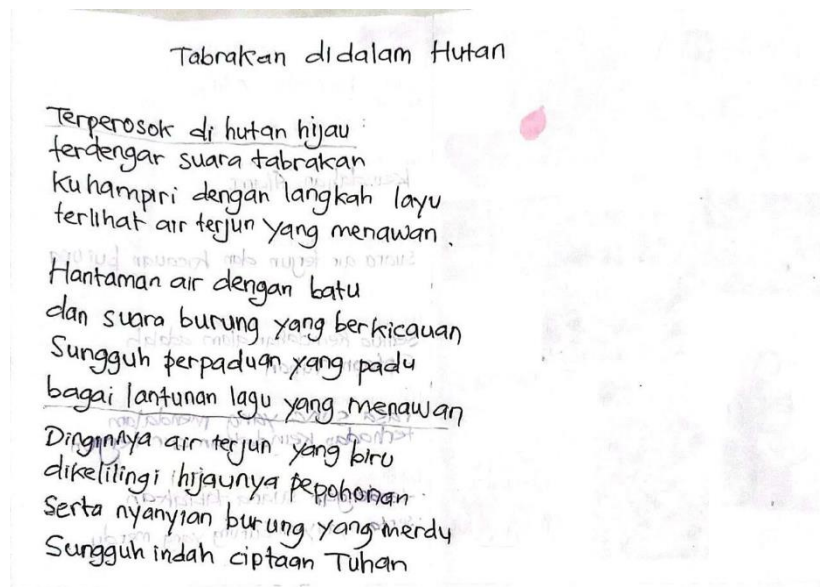 Tabrakan didalam Hutan
Terperosok di hutan hijau
terdengar suara tabrakan
Kuhampiri dengan langkah layu
terlihat air terjun yang menawan.
Hantaman air dengan batu
dan suara burung yang berkicauan
Sungguh perpaduan yang padu
bagai lantunan lagu yang menawan
Dinginnya air terjun yang biru
dikelilingi hijaunya pepohonan
Serta nyanyian burung yang merdu
Sungguh indah ciptaan Tuhan